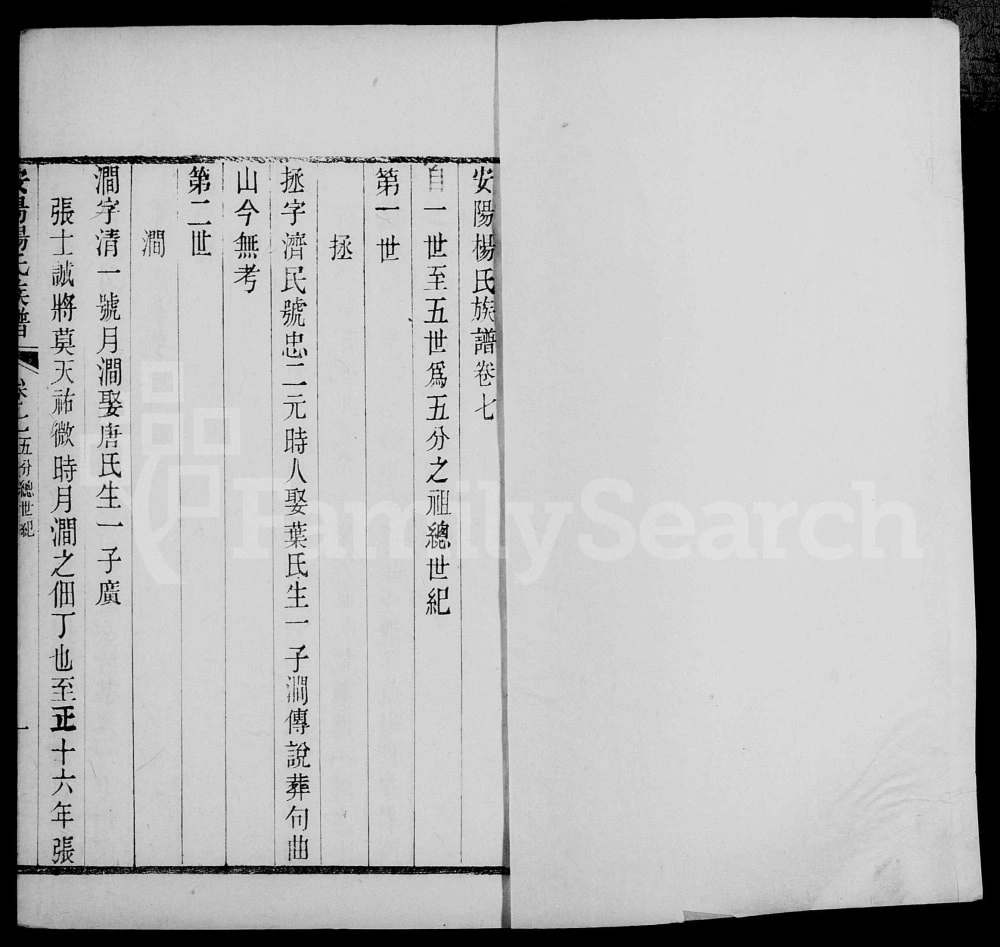 安陽楊氏族譜卷七
自一世至五世爲五分之祖總世紀
第一世
拯
拯字濟民號忠二元時人娶葉氏生一子澗傳說葬句曲
山今無考
第二世
澗
澗字清一號月澗娶唐氏生一子廣
張士誠將莫天祐微時月澗之佃丁也至正十六年張
安陽楊氏族譜
卷七
五分總世紀
一
FamilySearch